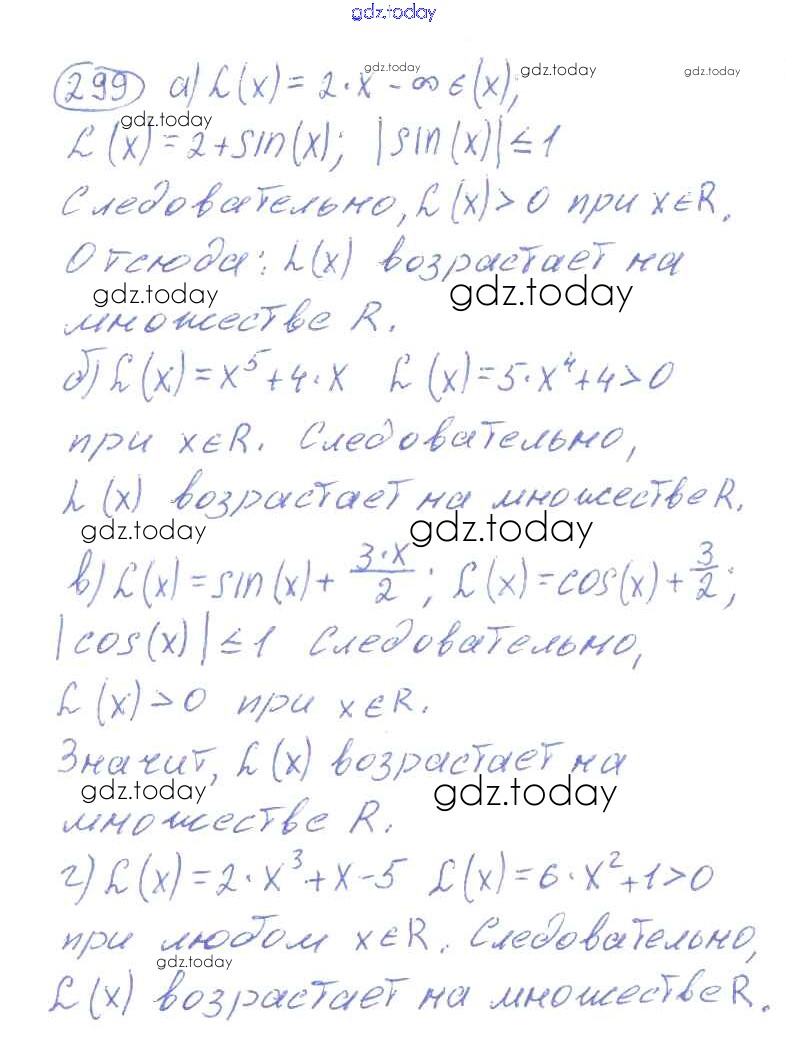 gdz.today
299 а) L(x) = 2·x - ∞ є (x);
gdz.today gdz.today gdz.today
gdz.today
L (x) = 2 + sin(x); |sin(x)| ≤ 1
Следовательно, L(x) > 0 при x∈R.
Отсюда: L(x) возрастает на
gdz.today gdz.today
множестве R.
б) L(x) = x⁵ + 4·x L (x) = 5·x⁴ + 4 > 0
при x∈R. Следовательно,
L (x) возрастает на множестве R.
gdz.today gdz.today
в) L(x) = sin(x) + 3·x/2; L(x) = cos(x) + 3/2;
|cos(x)| ≤ 1 Следовательно,
L (x) > 0 при x∈R.
Значит, L(x) возрастает на
gdz.today gdz.today
множестве R.
г) L(x) = 2·x³ + x - 5 L(x) = 6·x² + 1 > 0
при любом x∈R. Следовательно,
gdz.today
L(x) возрастает на множестве R.